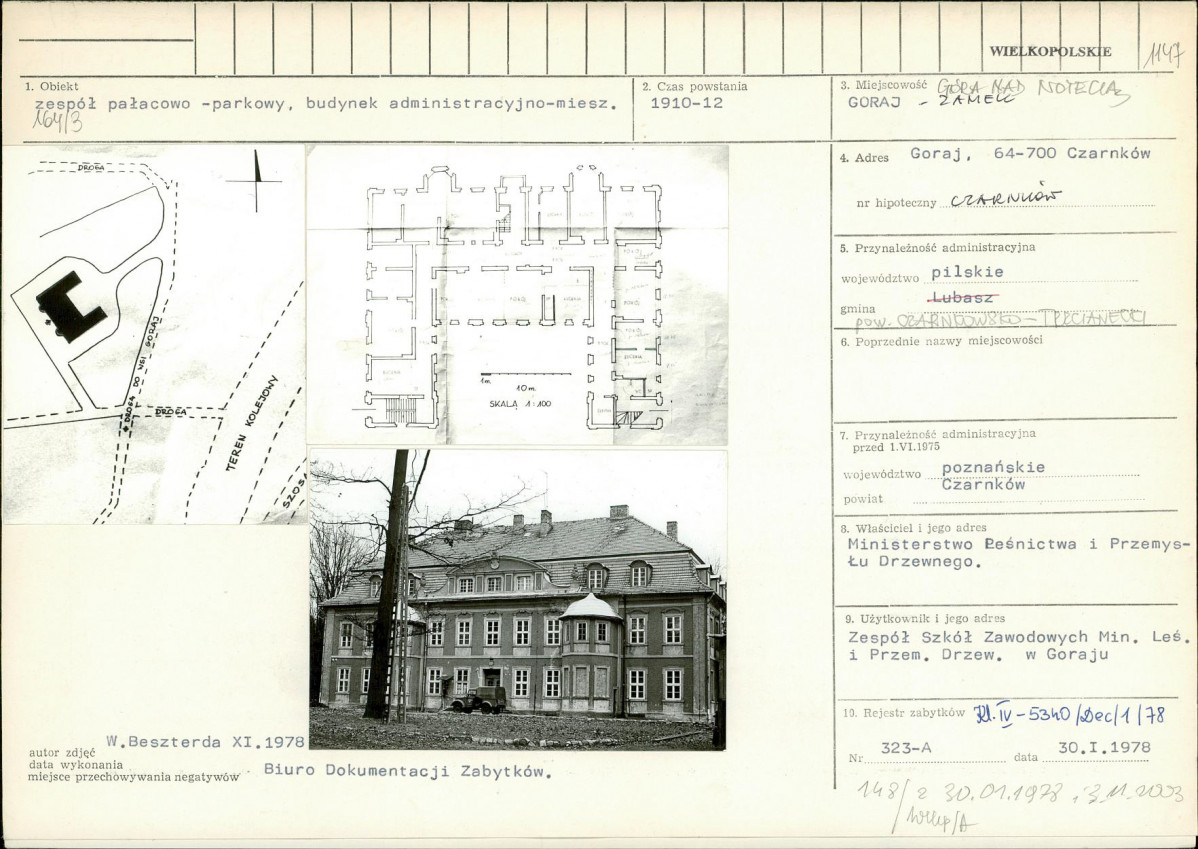 WIELKOPOLSKIE
1147
1. Obiekt
zespół pałacowo -parkowy, budynek administracyjno-miesz.
164/3
2. Czas powstania
1910-12
3. Miejscowość GÓRA NAD NOTECIĄ
GORAJ - ZAMEK
4. Adres Goraj, 64-700 Czarnków
nr hipoteczny CZARNKÓW
5. Przynależność administracyjna
województwo pilskie
gmina Lubasz
pow. CZARNKOWSKO-TRZCIANECKI
6. Poprzednie nazwy miejscowości
7. Przynależność administracyjna
przed 1.VI.1975
województwo poznańskie
powiat Czarnków
8. Właściciel i jego adres
Ministerstwo Leśnictwa i Przemys-
łu Drzewnego.
9. Użytkownik i jego adres
Zespół Szkół Zawodowych Min. Leś.
i Przem. Drzew. w Goraju
10. Rejestr zabytków Kl.IV-5340/Dec/1/78
Nr 323-A data 30.I.1978
148/ z 30.01.1978 i 3.11.2003
Wlkp/A
DROGA
DROGA DO WSI GORAJ
DROGA
TEREN KOLEJOWY
SZOSA
1m. 10m.
SKALA 1:100
autor zdjęć W.Beszterda XI.1978
data wykonania
miejsce przechowywania negatywów Biuro Dokumentacji Zabytków.